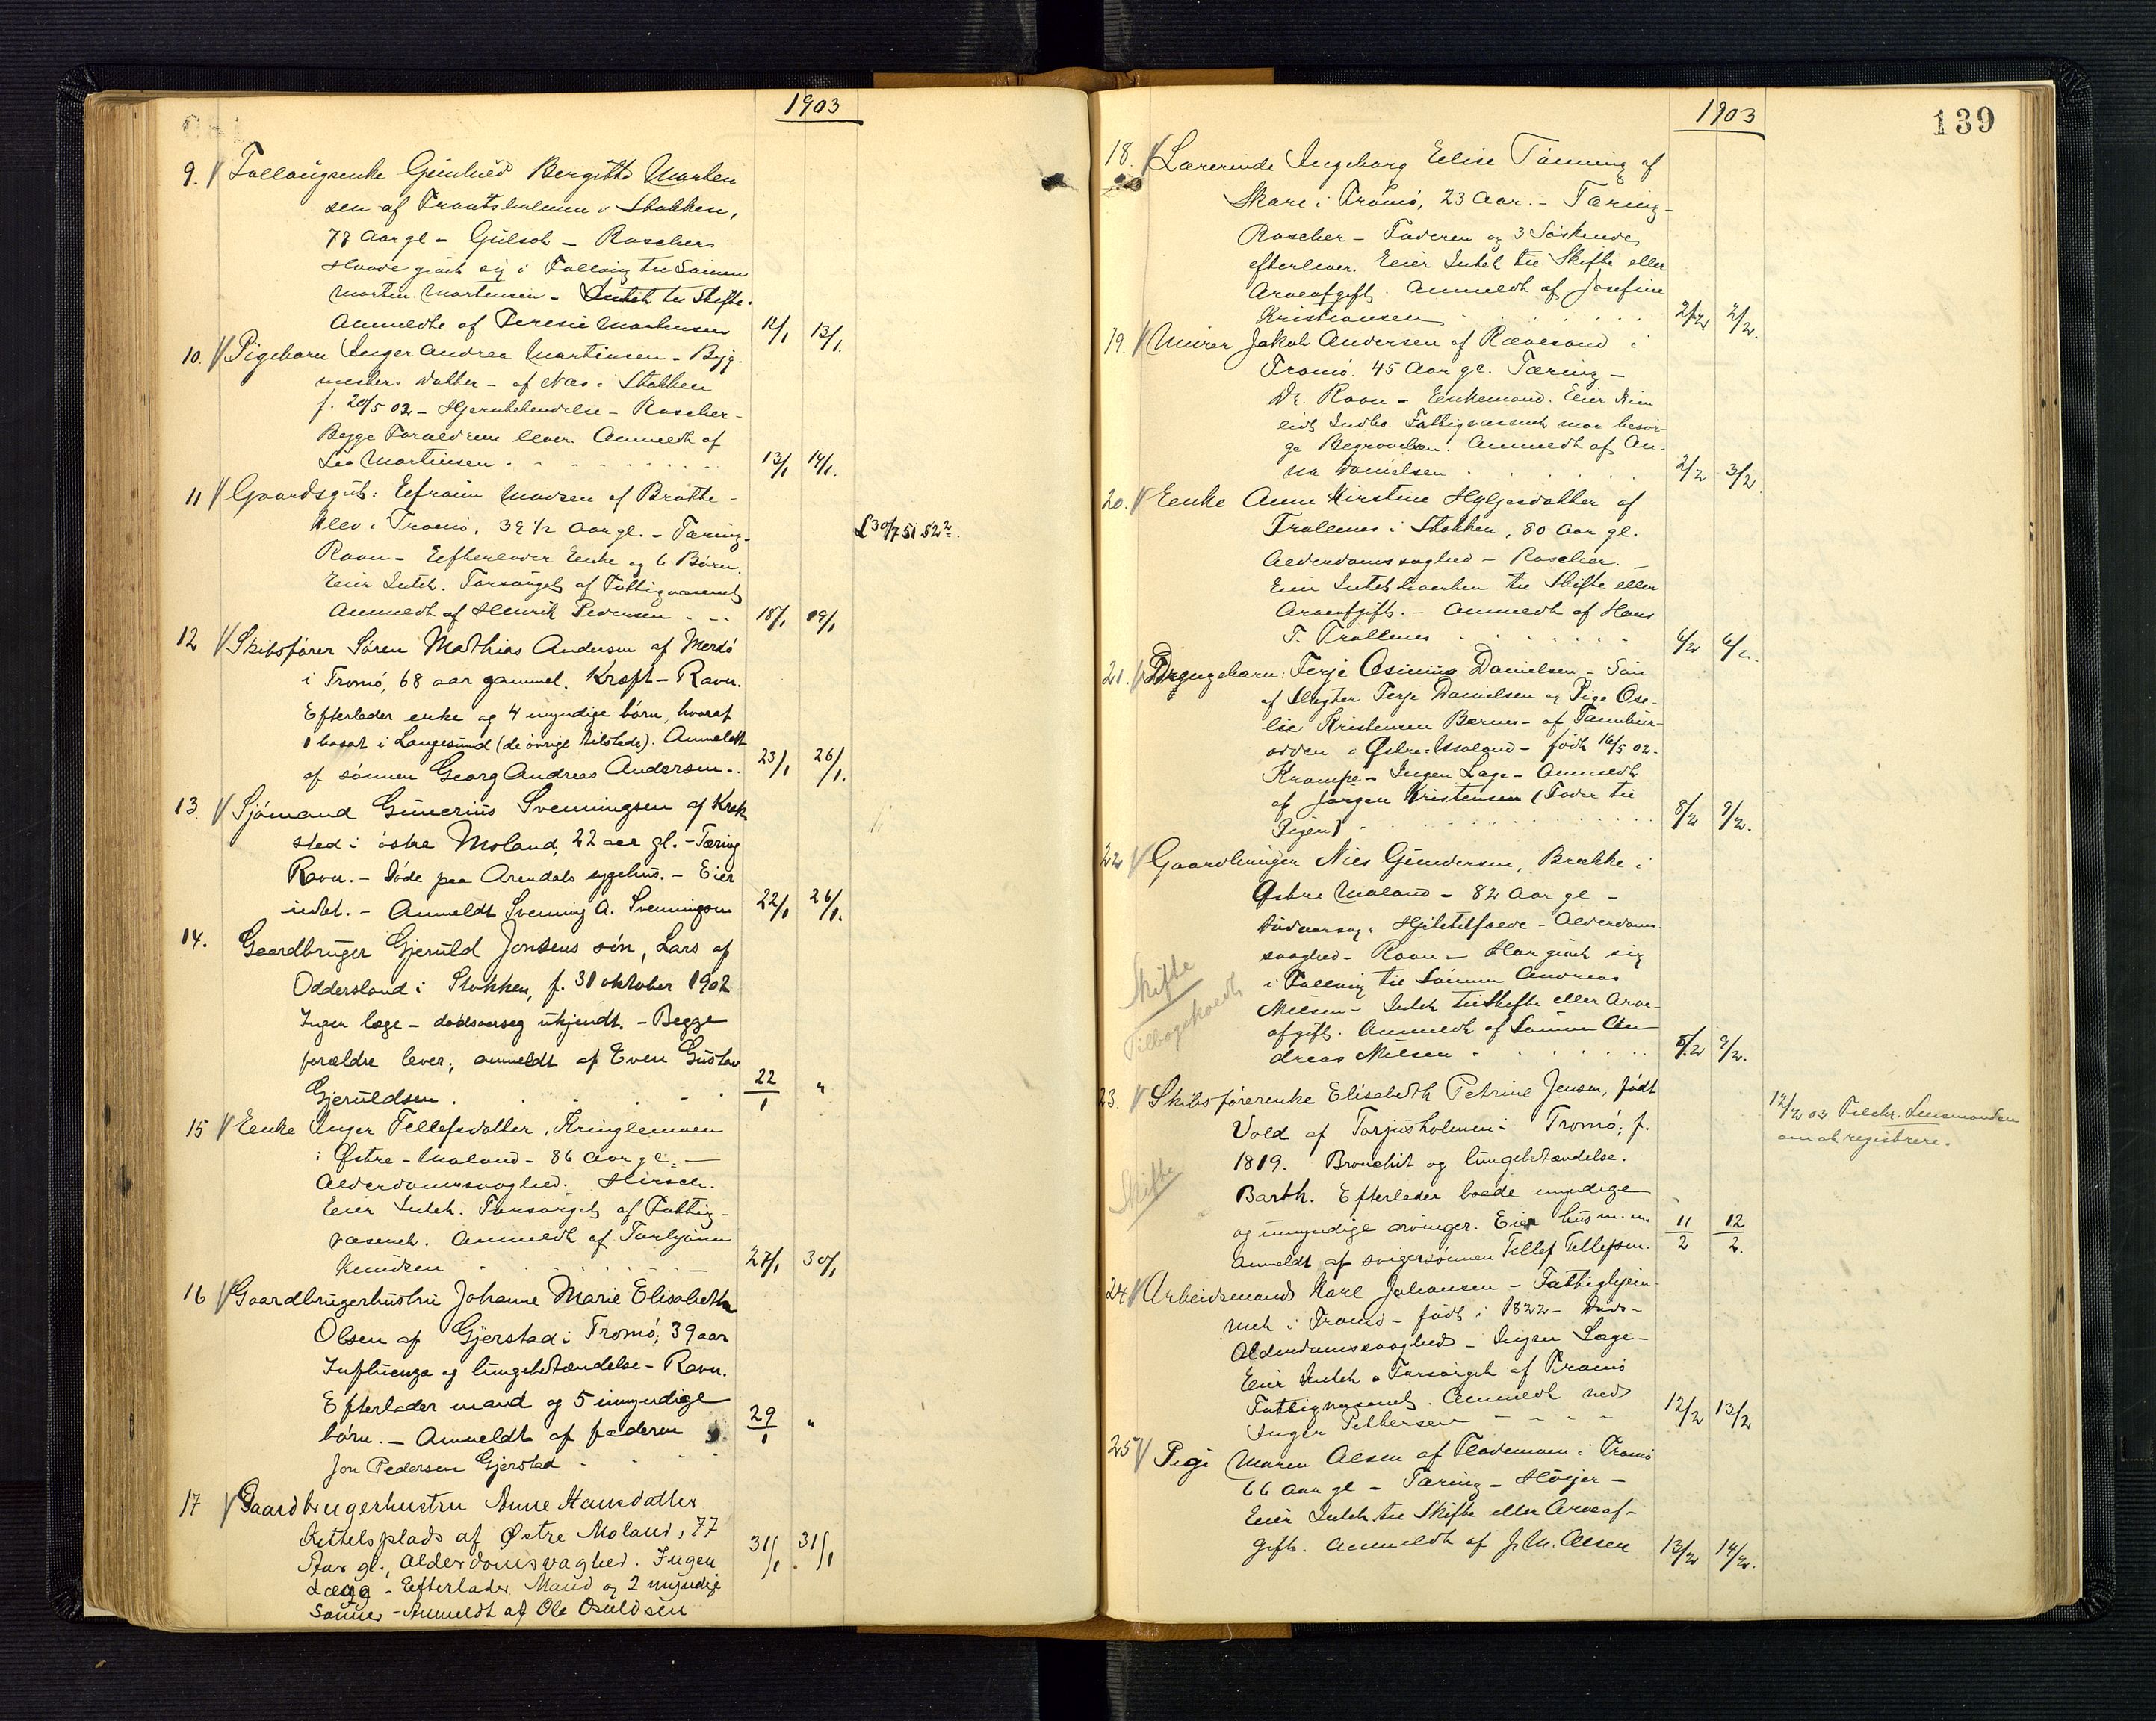 1903
9. Follaugsenke Gunhild Bergitte Morten
sen af Frantsholmen i Stokken,
77 Aar gl. - Gulsot - Roscher.
Havde givet sig i Follaug til Sønnen
Morten Mortensen - Intet til Skifte.
Anmeldte af Teresie Mortensen 12/1 13/1.
10. Pigebarn Inger Andrea Martinsen - Byg-
mesters Datter - af Næs i Stokken
f. 20/5 02 - Hjernebetændelse - Roscher -
Begge Forældrene lever. Anmeldt af
Lea Martinsen . 13/1 14/1.
11 Gaardsgut: Eefraim Madsen af Bratte-
klev i Tromø, 39 1/2 Aar gl. - Tæring -
Ravn - Efterlader Enke og 6 Børn.
Eier Intet. Forsørget af Fattigvæsenet
Anmeldt af Henrik Pedersen 18/1 19/1
12 Skibsfører Søren Mathias Andersen af Merdø
i Tromø, 68 aar gammel. Kræft - Ravn.
Efterlader enke og 4 myndige børn, hvoraf
1 bosat i Langesund (de øvrige tilstede). Anmeldt
af sønnen Georg Andreas Andersen. 23/1 26/1.
13. Sjømand Gunerius Svenningsen af Krøk
sted i østre Moland, 22 aar gl. - Tæring
Ravn. - Døde paa Arendals sygehus. - Eier
intet. - Anmeldt Svenning A. Svenningsen 22/1 26/1.
14. Gaardbruger Gjeruld Jensens søn, Lars af
Oddersland i Stokken, f. 31 oktober 1902
Ingen læge - dødsaarsag ukjendt. - Begge
forældre lever; anmeldt af Even Gustav
Gjeruldsen . 22/1 "
15 Enke Inger Tellefsdatter, Kringlemoen
i Østre-Moland - 86 Aar gl. -
Alderdomssvaghed. Hirsch.
Eier Intet. Forsørget af Fattig-
væsenet. Anmeldt af Torbjørn
Knudsen 27/1 30/1
16 Gaardbrugerhustru Johanne Marie Elisabeth
Olsen af Gjerstad i Tromø; 39 aar
Influenza og lungebetændelse - Ravn.
Efterlader mand og 5 umyndige
børn. - Anmeldt af faderen 29/1 "
Jon Pedersen Gjerstad
17 Gaardbrugerhustru Anne Hansdatter
Kittelsplads af Østre Moland, 77
Aar gl., Alderdomsvaghed. Ingen
Læge - Efterlader Mand og 2 myndige
Sønner - Anmeldt af Ole Osuldsen 31/1. 31/1
1903
139
18. Lærerinde Ingeborg Elise Tønning af
Skare i Tromø, 23 Aar. - Tæring -
Roscher - Faderen og 3 Søskende
efterlever. Eier Intet til Skifte eller
Arveafgift. Anmeldt af Josefine
Kristiansen 2/2 2/2.
19. Murer Jakob Andersen af Rævesand i
Tromø. 45 Aar gl. Tæring -
Dr. Ravn - Enkemand. Eier Kun
lidt Indbo. Fattigvæsenet maa besør-
ge Begravelsen. Anmeldt af An-
na Danielsen 2/2 3/2.
20. Eenke Anne Kirstine Hylgesdatter af
Trollenes i Stokken, 80 Aar gl.
Alderdomssvaghed - Roscher. -
Eier Intet hverken til Skifte eller
Arveafgift. - Anmeldt af Hans
T. Trollenes 6/2 6/2.
21. Drengebarn: Terje Osinius Danielsen - Søn
af Slagter Terje Danielsen og Pige Ose-
lie Kristensen Barnes - af
odden i Østre-Moland - født 16/5 02.
Krampe - Ingen Læge - Anmeldt
af Jørgen Kristensen (Fader til
Pigen) 8/2 9/2.
22 Gaardbruger Niels Gundersen, Brække i
Østre Moland - 82 Aar gl -
Dødsaarsag: Hjertetilfælde - Alderdoms
svaghed - Ravn - Har givet sig
i Follaug til Sønnen Andreas
Nilsen - Intet til Skifte eller Arve-
afgift. Anmeldt af Sønnen An
dreas Nilsen 8/2 9/2.
Skifte
Tilbageholdt
23. Skibsførerenke Elisabeth Petrine Jensen, født
Vold af Torjusholmen i Tromø; f.
1819. Bronchit og lungebetændelse.
Barth. Efterlader baade myndige
og umyndige arvinger. Eier hus m.m.
Anmeldt af svigersønnen Tellef Tellefsen. 11/2 12/2.
Skifte
12/2 03 Tilskr. Lensmanden
om at registrere.
24. Arbeidsmand Karl Johansen - Fattighjem-
met i Tromø - født i 1822 - Døds-
Alderdomssvaghed - Ingen Læge -
Eier Intet. Forsørget af Tromø
Fattigvæsenet. Anmeldt ved
Inger Pettersen 12/2 13/2
25 Pige Maren Olsen af Flodemoen i Tromø
66 Aar gl - Tæring - Høyer -
Eier Intet til Skifte eller Arveaf-
gift. Anmeldt af J. M. Olsen 13/2 14/2.